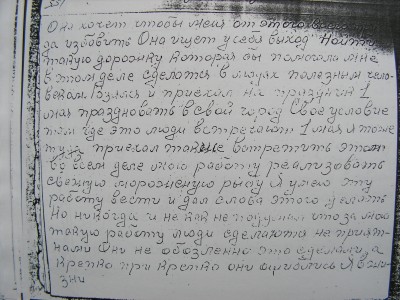 551
Она хочет чтобы меня от этого всег
да избавить Она ищет у себя выход Найти
такую дорожку которая бы помогала мне
в этом деле сделатся в людях полезным чело-
веком Взялся и приехал на праздник 1
мая праздновать в свой город Свое условие
там где это люди встречают 1 мая я тоже
туда приехал также встретить этот
во всем деле мою работу реализовать
свежую мороженую рыбу Я умею эту
работу вести и дал слова этого делать
Но никогда и не как не подумал что за мою
такую работу люди сделаются не прият-
нами Они не обозленно это сделали, а
крепко при крепко они ошиблись Я в жи-
зни